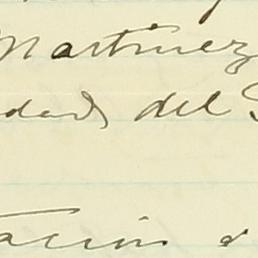 Martinez
dad, del S
tación d